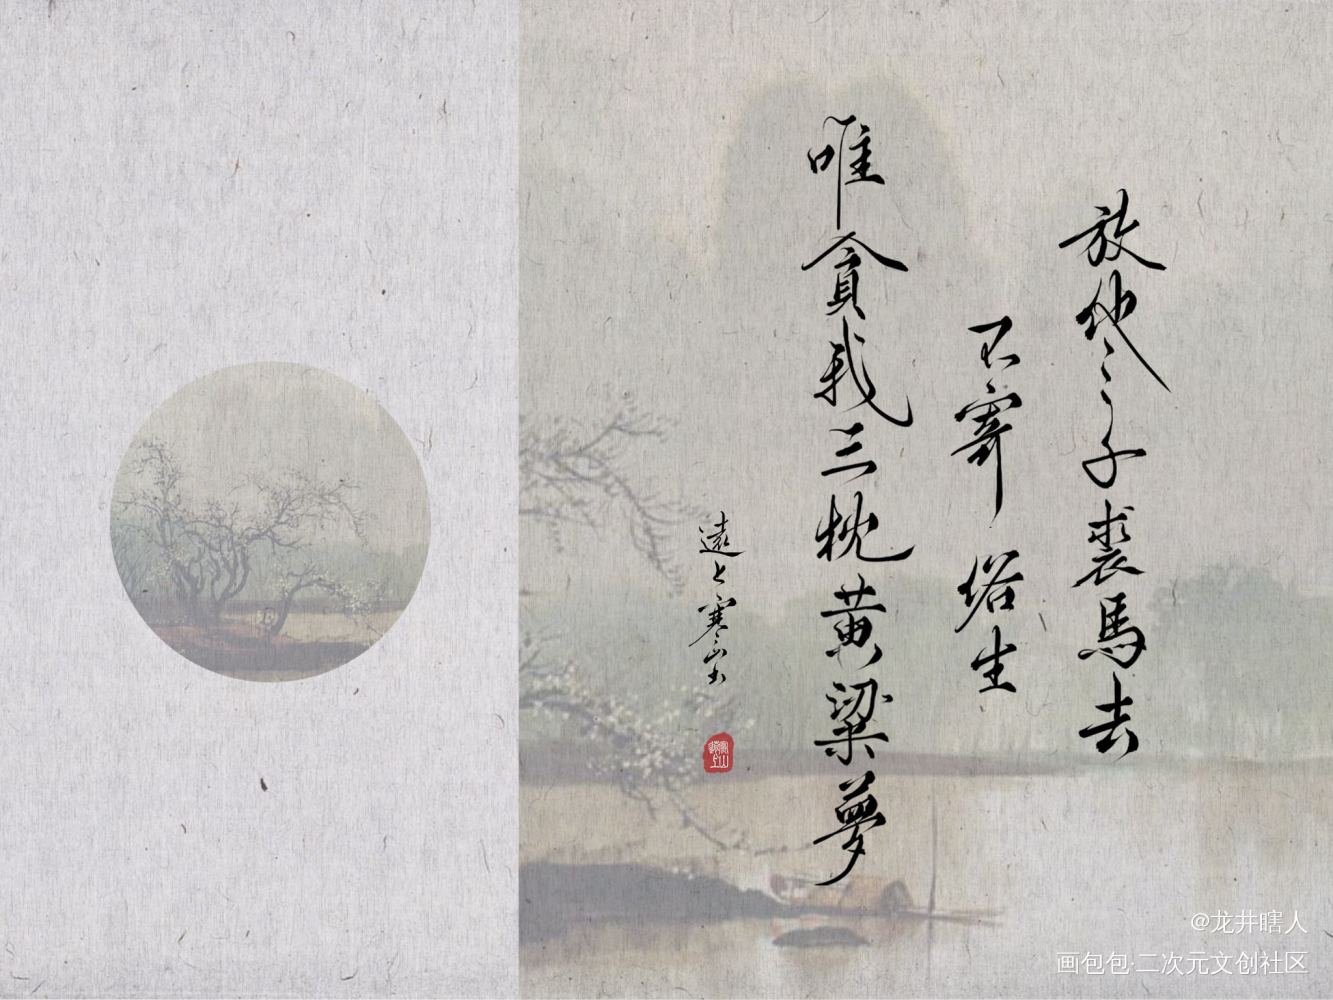 放他公子裘馬去
不寄俗生
唯貪我三枕黄粱夢
遠上寒山
@龙井瞎人
画包包·二次元文创社区